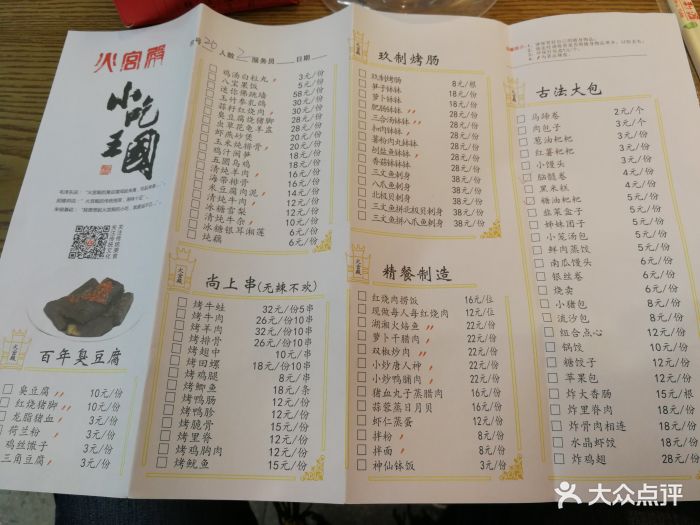 火宫殿
小吃王國
百年臭豆腐
臭豆腐 10元/份
红烧猪脚 10元/份
龙脂猪血 3元/份
荷兰粉 3元/份
鸡丝馓子 3元/份
三角豆腐 3元/份
人数 2 服务员 日期
鸡汤白粒丸 3元/份
八宝果饭 5元/份
迷你佛跳墙 58元/份
玉竹参乳鸽 30元/份
蒜籽红烧肉 28元/份
臭豆腐烧猪脚 28元/份
虫草花龟羊盅 28元/份
虾燕砂煲 20元/份
玉米炖排骨 20元/份
鸡汁闷笋 18元/份
五圆乌鸡 18元/份
清炖羊肉 16元/份
海带排骨 16元/份
米豆腐肉泥 15元/份
清炖牛肉 12元/份
冰糖雪梨 12元/份
清炖牛杂 10元/份
冰糖银耳湘莲 6元/份
炖藕 6元/份
尚上串(无辣不欢)
烤牛蛙 32元/份5串
烤牛肉 26元/份10串
烤羊肉 32元/份10串
烤排骨 26元/份10串
烤翅中 10元/串
烤田螺 18元/份10串
烤鸡腿 8元/串
烤鲫鱼 18元/条
烤鸭肠 12元/份
烤鸭胗 12元/份
烤脆骨 15元/份
烤里脊 12元/份
烤鸡胸肉 12元/份
烤鱿鱼 15元/份
玖制烤肠
玖制烤肠 8元/根
笋子钵钵 18元/份
萝卜钵钵 18元/份
肥肠钵钵 28元/份
三合汤钵钵 28元/份
扣肉钵钵 28元/份
薯粉肉丸钵钵 28元/份
剁盐鱼钵钵 28元/份
香菇钵钵 28元/份
三文鱼刺身 38元/份
八爪鱼刺身 38元/份
北极贝刺身 38元/份
三文鱼拼北极贝刺身 38元/份
三文鱼拼八爪鱼刺身 38元/份
精餐制造
红烧肉捞饭 16元/位
现做每人每红烧肉 12元/位
湖湘火焙鱼 22元/份
萝卜干腊肉 22元/份
双椒炒肉 22元/份
小炒唐人神 22元/份
小炒鸭脯肉 22元/份
猪血丸子蒸腊肉 22元/份
蒜蓉蒸日月贝 16元/份
虾仁蒸蛋 12元/份
拌粉 8元/份
拌面 8元/份
神仙钵饭 3元/份
古法大包
马蹄卷 2元/个
肉包子 3元/个
葱油粑粑 3元/份
红薯粑粑 3元/份
小馒头 4元/份
脑髓卷 5元/份
黑米糕 5元/份
糖油粑粑 5元/份
韭菜盒子 5元/份
姊妹团子 5元/份
小笼汤包 5元/份
鲜肉蒸饺 5元/份
南瓜馒头 6元/份
银丝卷 6元/份
烧卖 6元/份
小猪包 8元/份
流沙包 8元/份
组合点心 12元/份
锅饺 10元/份
糖饺子 12元/份
苹果包 12元/份
炸大香肠 15元/根
炸里脊肉 18元/份
炸骨肉相连 18元/份
水晶虾饺 18元/份
炸鸡翅 28元/份
大众点评